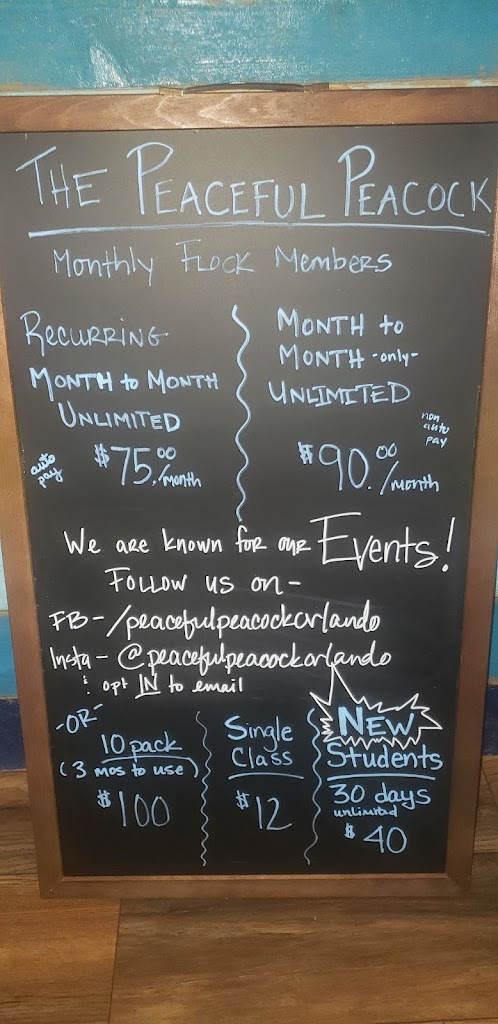 THE PEACEFUL PEACOCK
Monthly FLOCK Members
RECURRING
MONTH to MONTH
UNLIMITED
auto pay
$75.00/month
MONTH to
MONTH -only-
UNLIMITED
non auto pay
$90.00/month
We are known for our Events!
Follow us on -
FB - /peacefulpeacockorlando
Insta - @peacefulpeacockorlando
: opt IN to email
-OR-
10 pack
(3 mos to use)
$100
Single
Class
$12
NEW
Students
30 days
unlimited
$40